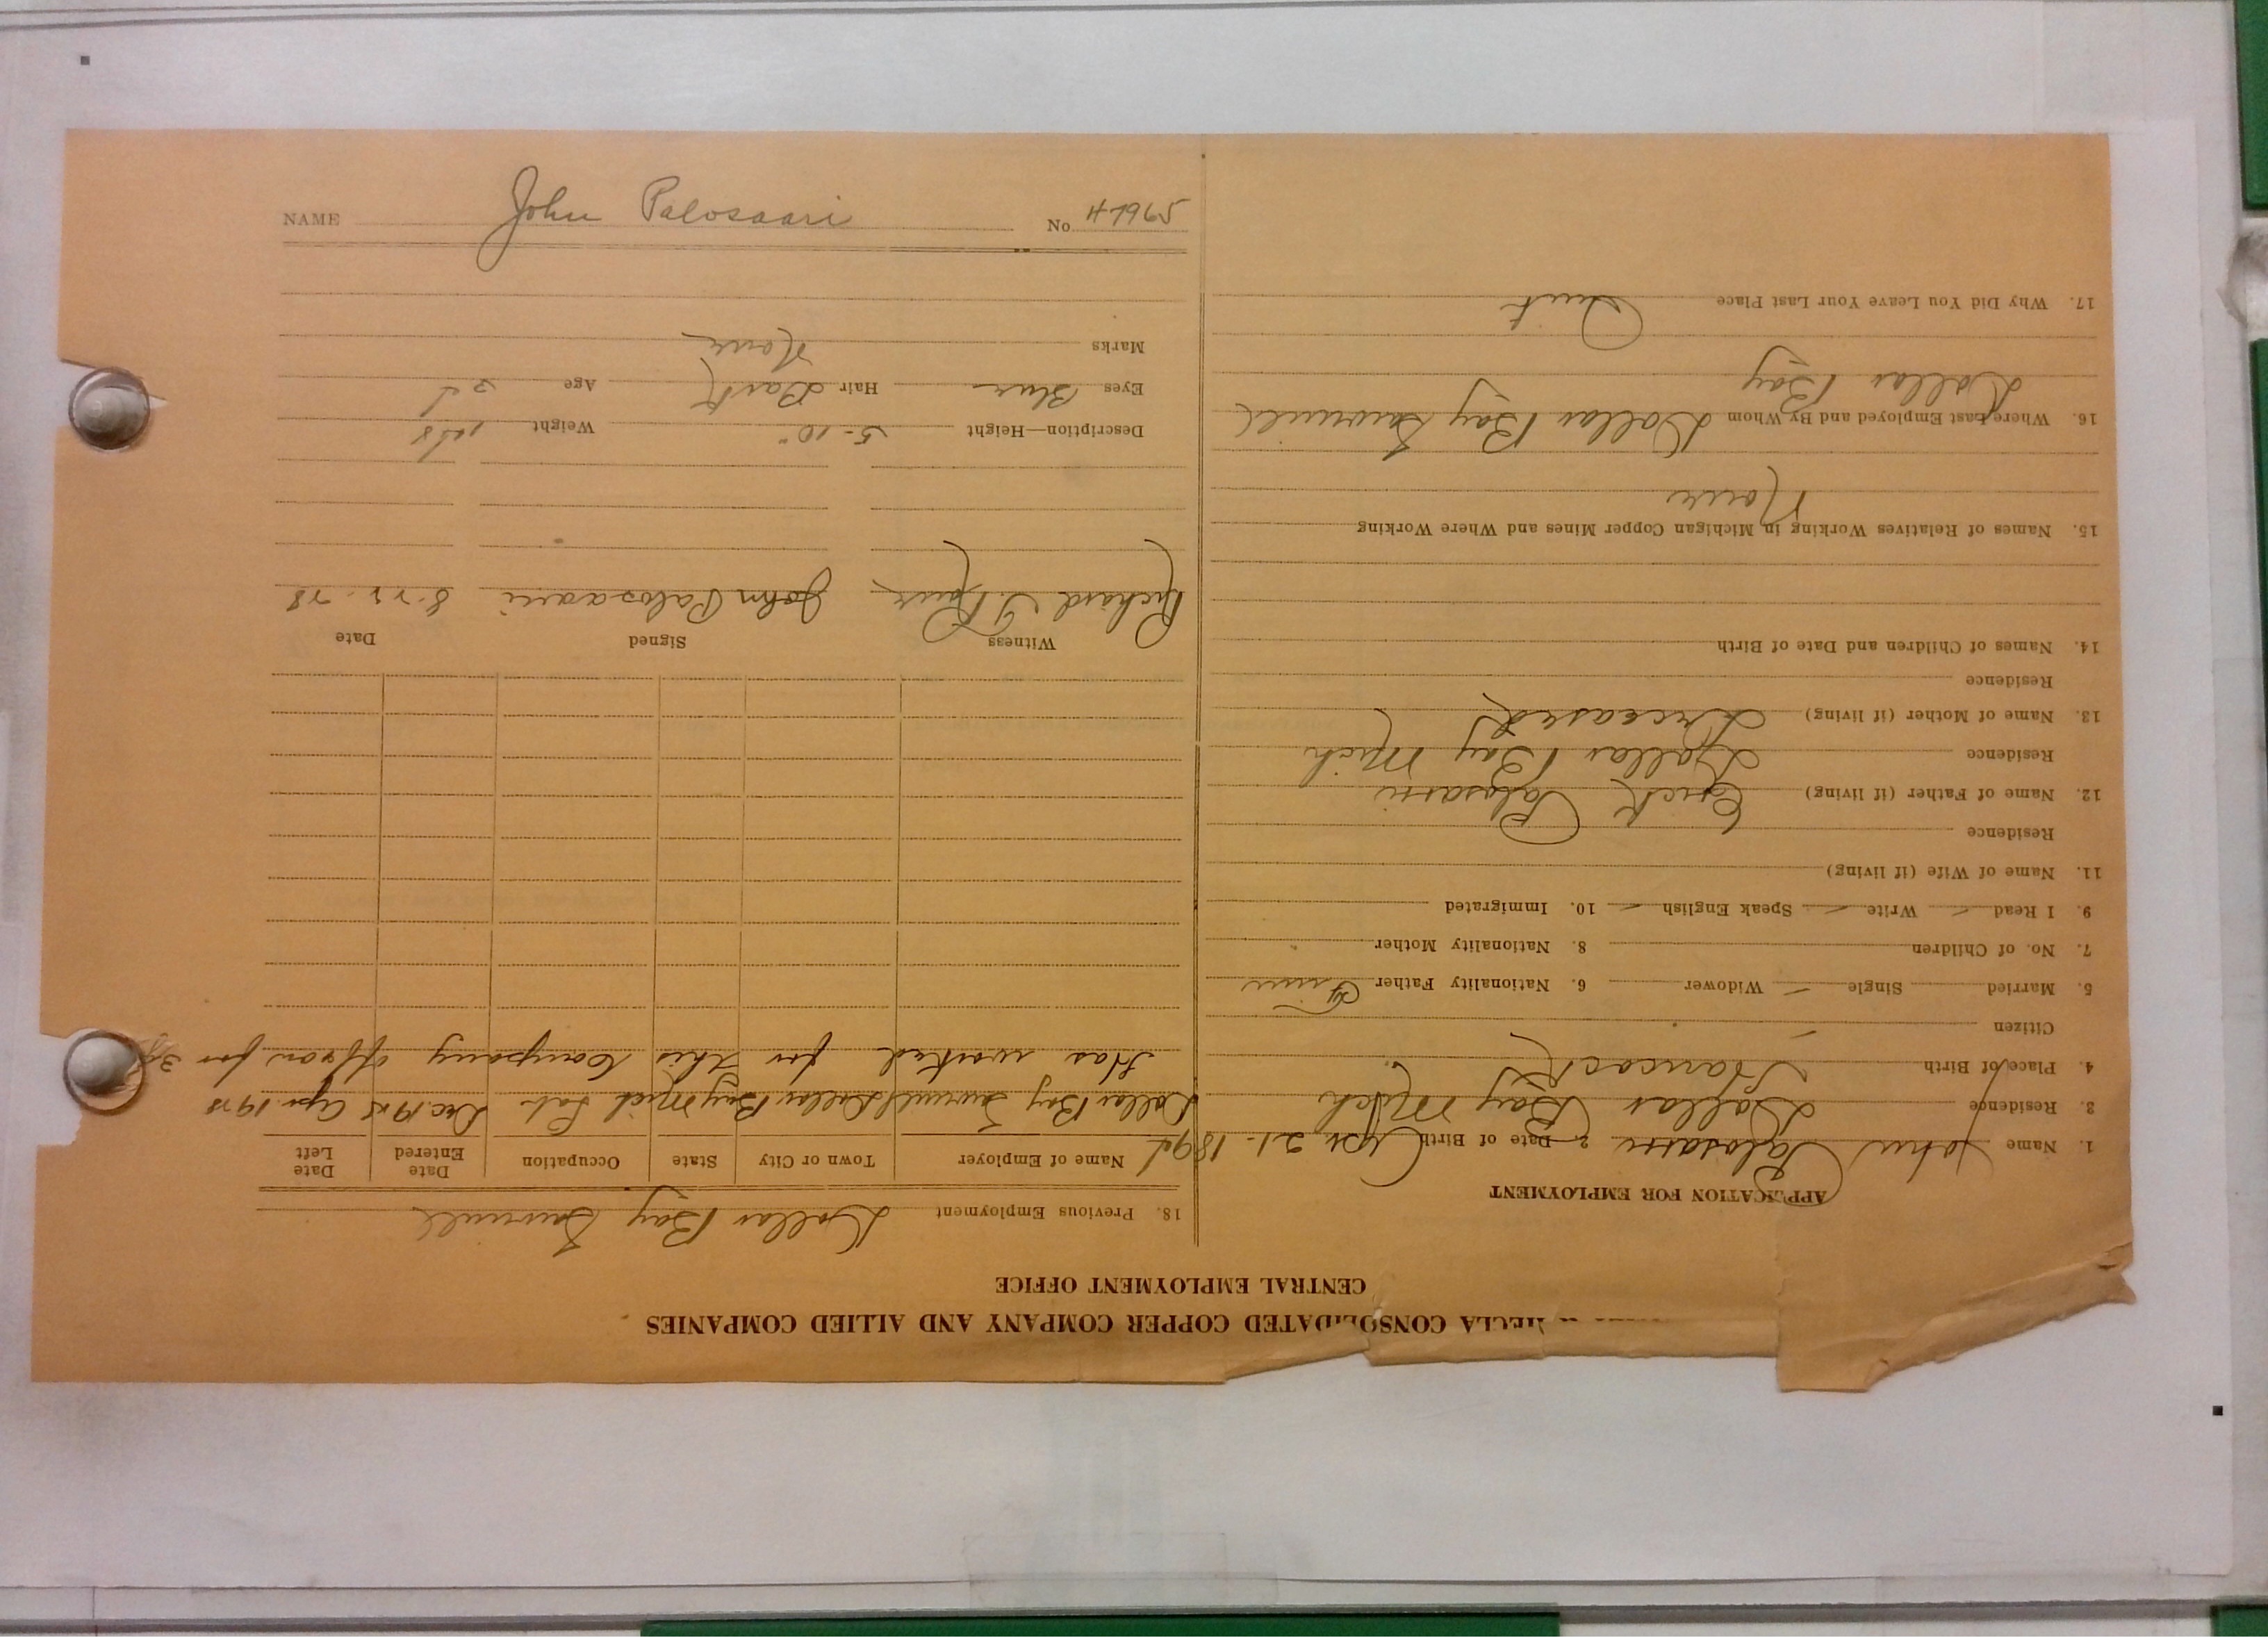 NAME John Palosaari No 47965
HECLA CONSOLIDATED COPPER COMPANY AND ALLIED COMPANIES
CENTRAL EMPLOYMENT OFFICE
APPLICATION FOR EMPLOYMENT
1. Name John Palosarri 2. Date of Birth Apr. 21-
3. Residence Dollar Bay Mich
4. Place of Birth Hancock
Citizen
5. Married Single Widower 6. Nationality Father Finn
7. No. of Children 8. Nationality Mother
9. I Read Write Speak English 10. Immigrated
11. Name of Wife (if living)
Residence
12. Name of Father (if living) Erick Palosarri
Residence Dollar Bay Mich
13. Name of Mother (if living) Deceased
Residence
14. Names of Children and Date of Birth
15. Names of Relatives Working in Michigan Copper Mines and Where Working
None
16. Where Last Employed and By Whom Dollar Bay Sawmill
Dollar Bay
17. Why Did You Leave Your Last Place Quit
18. Previous Employment Dollar Bay Sawmill
Name of Employer Town or City State Occupation Date Entered Date Left
Dollar Bay Sawmill Dollar Bay Mich Lab. Dec. Apr.
Has worked for this Company off & on for
Witness Signed Date
Richard John Palosaari
Description—Height 5-10" Weight
Eyes Blue Hair Dark Age
Marks None